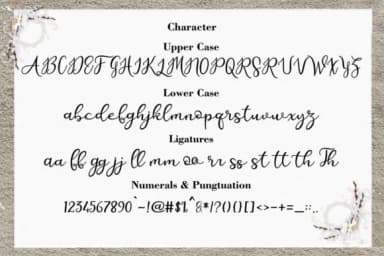 Character
Upper Case
ABCDEFGHIJKLMNOPQRSTUVWXYZ
Lower Case
abcdefghijklmnopqrstuvwxyz
Ligatures
aa ff gg jj ll mm oo rr ss st tt th Th
Numerals & Pungtuation
1234567890`~!@#$%^&*!?(){}[]<>-+=_::..